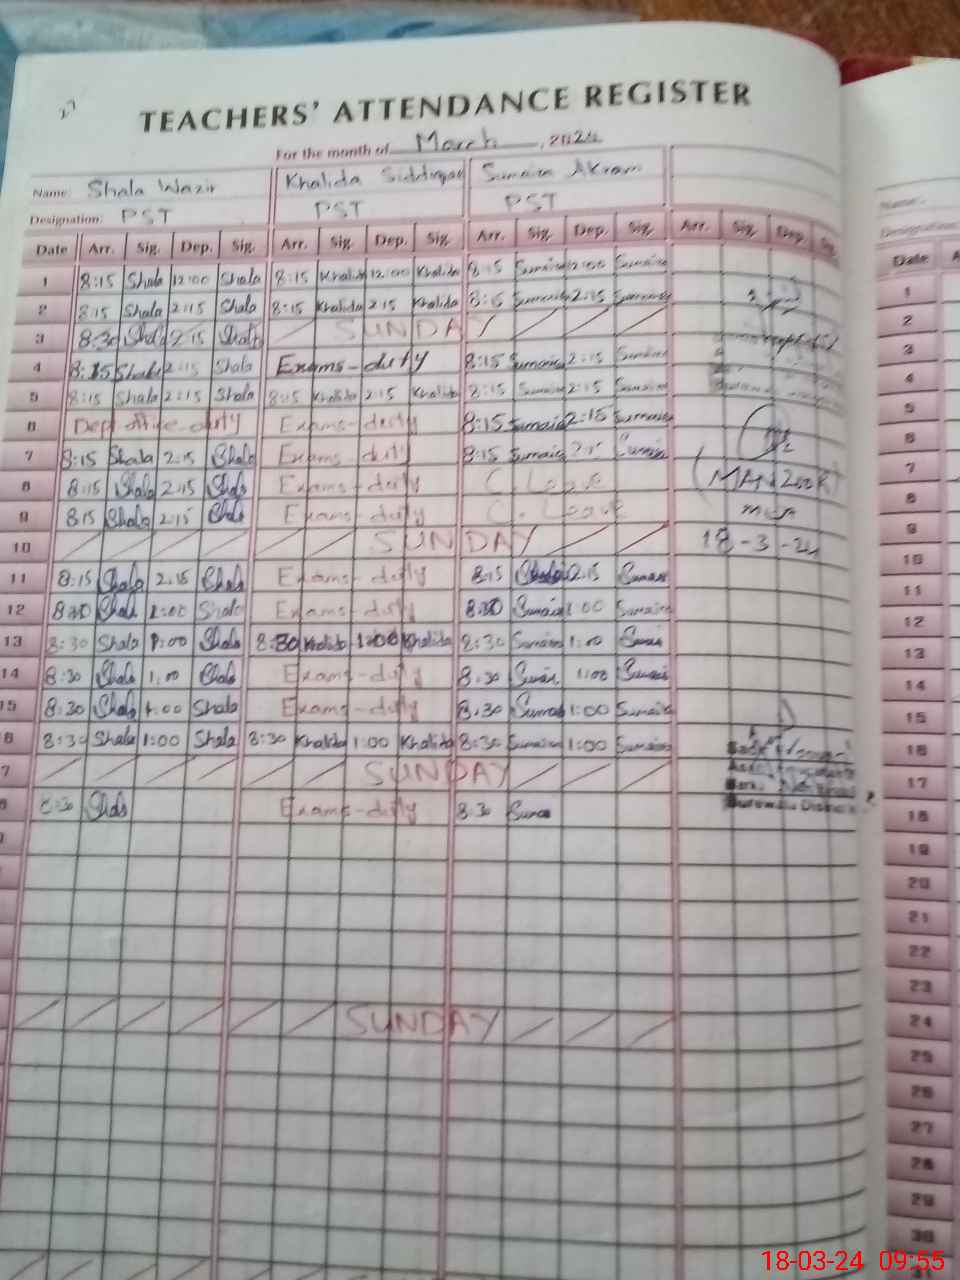 27
TEACHERS' ATTENDANCE REGISTER
For the month of March, 2024
Name: Shala Wazir Khalida Siddiqui Sumaira Akram
Designation: PST PST PST
Date Arr. Sig. Dep. Sig. Arr. Sig. Dep. Sig. Arr. Sig. Dep. Sig. Arr. Sig. Dep. Sig.
1 8:15 Shala 12:00 Shala 8:15 Khalida 12:00 Khalida 8:15 Sumaira 12:00 Sumaira
2 8:15 Shala 2:15 Shala 8:15 Khalida 2:15 Khalida 8:15 Sumaira 2:15 Sumaira
3 8:30 Shala 2:15 Shala SUNDAY
4 8:15 Shala 2:15 Shala Exams-duty 8:15 Sumaira 2:15 Sumaira
5 8:15 Shala 2:15 Shala 8:15 Khalida 2:15 Khalida 8:15 Sumaira 2:15 Sumaira
6 Dept office duty Exams-duty 8:15 Sumaira 2:15 Sumaira
7 8:15 Shala 2:15 Shala Exams duty 8:15 Sumaira 2:15 Sumaira
8 8:15 Shala 2:15 Shala Exams-duty C. Leave (MANZOOR)
9 8:15 Shala 2:15 Shala Exams-duty C. Leave MEA
10 SUNDAY 18-3-24
11 8:15 Shala 2:15 Shala Exams-duty 8:15 2:15 Sumaira
12 8:30 Shala 1:00 Shala Exams-duty 8:30 Sumaira 1:00 Sumaira
13 8:30 Shala 1:00 Shala 8:30 Khalida 1:00 Khalida 8:30 Sumaira 1:00 Sumaira
14 8:30 Shala 1:00 Shala Exams-duty 8:30 Sumaira 1:00 Sumaira
15 8:30 Shala 1:00 Shala Exams-duty 8:30 Sumaira 1:00 Sumaira
16 8:30 Shala 1:00 Shala 8:30 Khalida 1:00 Khalida 8:30 Sumaira 1:00 Sumaira
7 SUNDAY
8:30 Shala Exams-duty 8:30 Sumaira
SUNDAY
Name:
Designation:
Date A
1
2
3
4
5
6
7
8
9
10
11
12
13
14
15
16
17
18
19
20
21
22
23
24
25
26
27
28
29
30
31
18-03-24 09:55